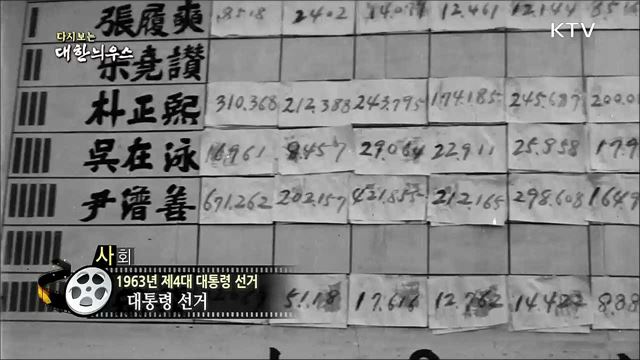 KTV
다시보는
대한늬우스
I 張履奭 8518 2402 14.077 12.461 12.144
II 宋堯讚
III 朴正熙 310.368 212.388 243.795 174.185 245.687 200.0
IIII 吳在泳 16.961 8.457 29.064 22.911 25.858 17.9
IIIII 尹潽善 671.262 202.157 421.855 212.165 298.608 1649
51.18 17.616 12.762 14.422 8.88
사회
1963년 제4대 대통령 선거
대통령 선거